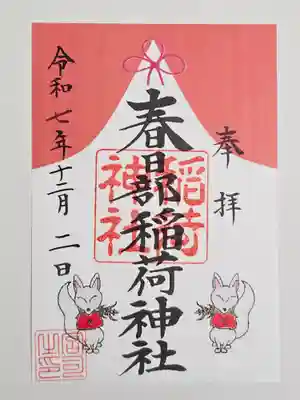 奉拝
春日部稲荷神社
稲荷
神社
令和七年十二月二日